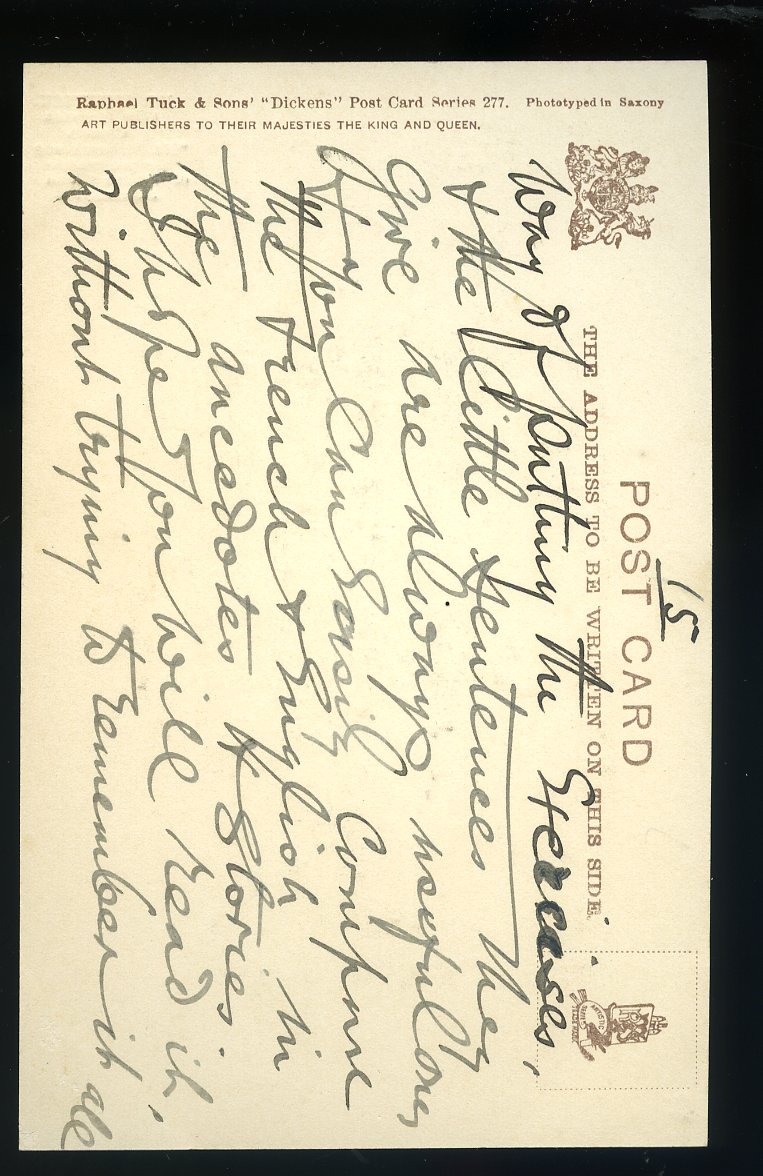 Raphael Tuck & Sons' "Dickens" Post Card Series 277. Phototyped in Saxony
ART PUBLISHERS TO THEIR MAJESTIES THE KING AND QUEEN.
15
POST CARD
THE ADDRESS TO BE WRITTEN ON THIS SIDE.
way of putting the Exercises,
& the little sentences they
give are always useful ones
& you can easily compare
the French & English in
the anecdotes & Stories
I hope you will read it,
without trying to remember it all